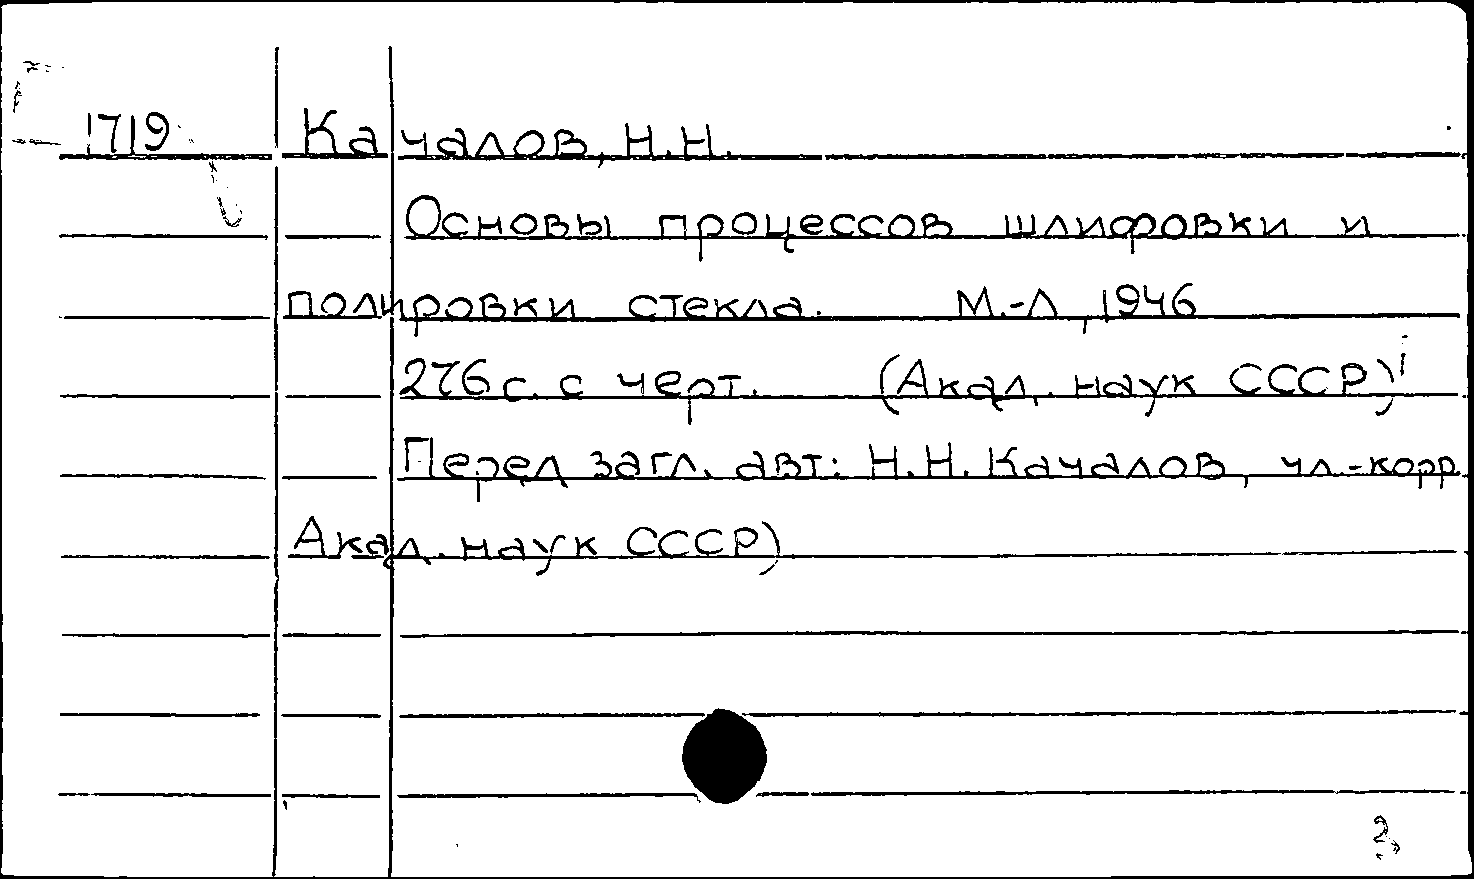 1719 Качалов, Н.Н.
Основы процессов шлифовки и
полировки стекла. М.-Л, 1946
276 с. с черт. (Акад. наук СССР)
Перед загл. авт: Н.Н. Качалов, чл.-корр
Акад. наук СССР)